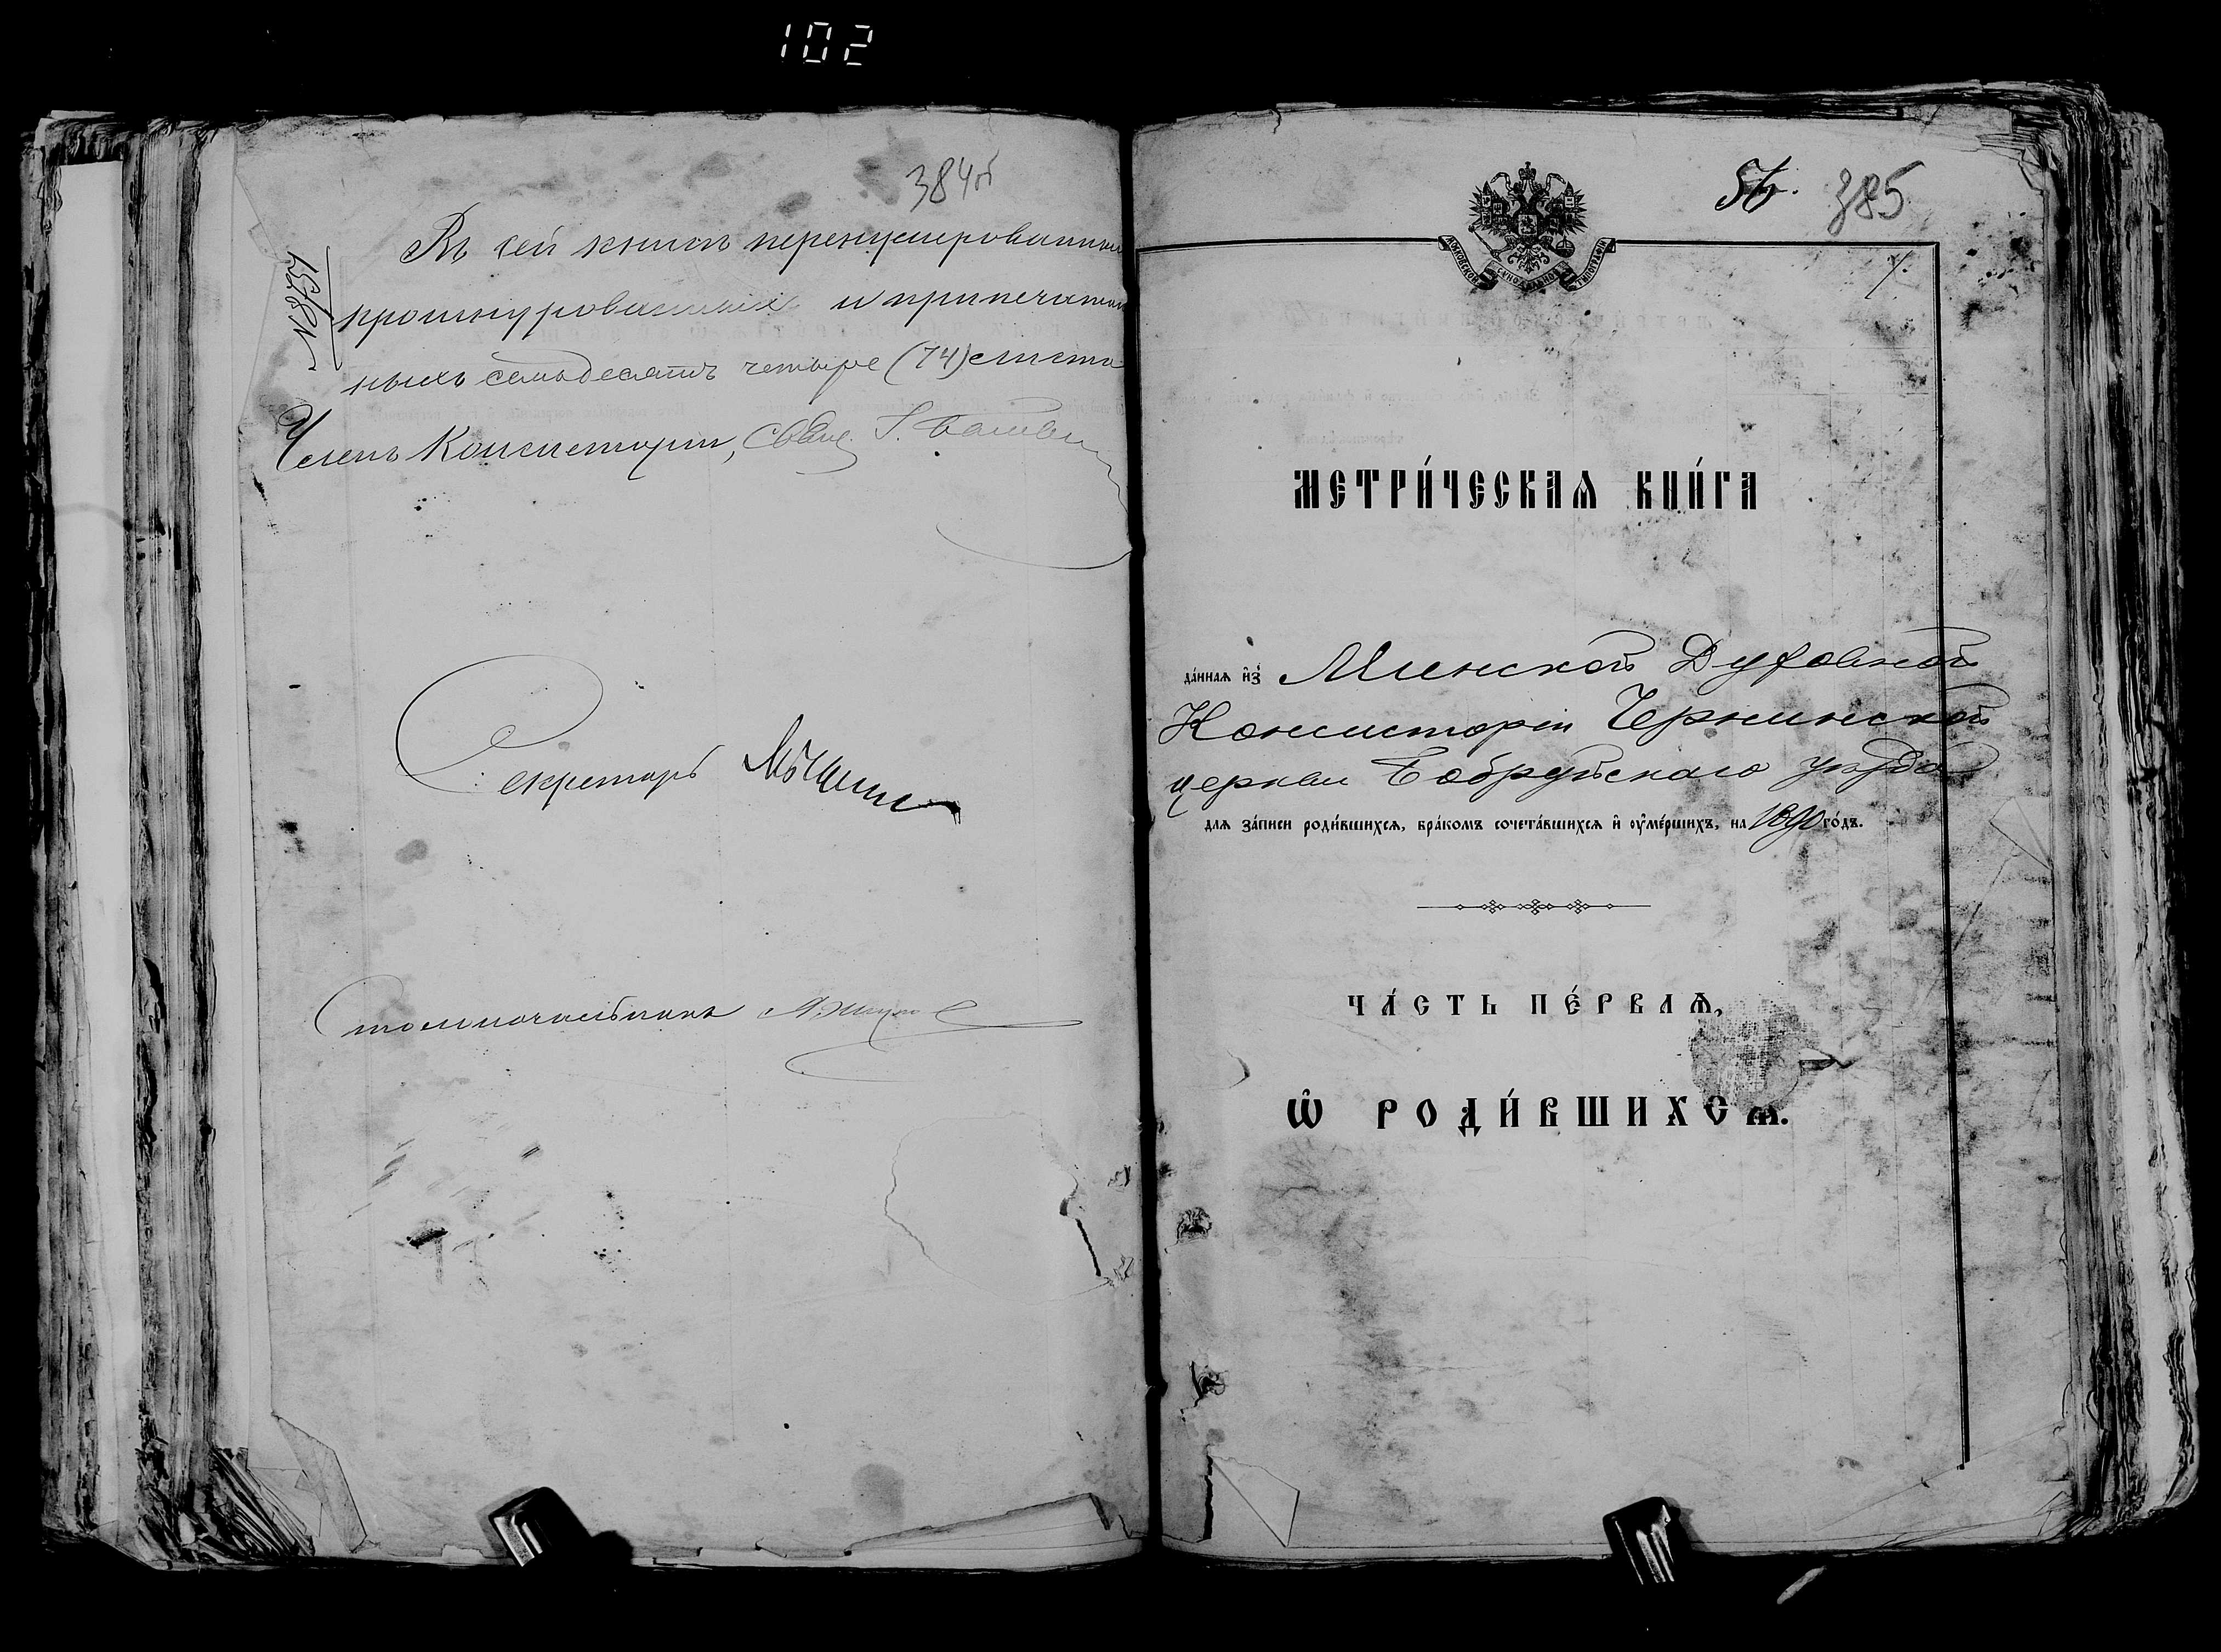 102
384об
№ 8751
Въ сей книгѣ перенумерованных
прошнурованныхъ и припечатан
ныхъ семьдесятъ четыре (74) листа
Членъ Консисторіи, Свящ.
Секретарь
Столоначальникъ
56. 385
МОСКОВСКОЙ СѴНОДАЛЬНОЙ ТИПОГРАФІИ
1.
МЕТРИ́ЧЕСКАѦ КНИ́ГА
да́ннаѧ и҆з̾ Минской Духовной
Консисторіи Чернинской
церкви Бобруйскаго уѣзда
длѧ за́писи роди́вшихсѧ, бра́комъ сочета́вшихсѧ и҆ ᲂу҆ме́ршихъ, на 1890 го́дъ.
ЧА́СТЬ ПЕ́РВАѦ,
Ѡ҆ РОДИ́ВШИХСѦ.